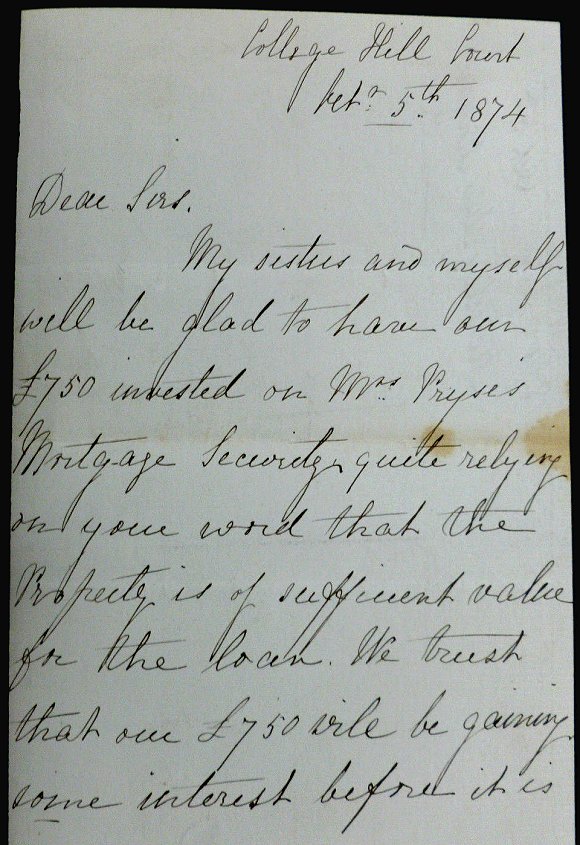 College Hill Court
Octr. 5th. 1874
Dear Sirs.
My sisters and myself
will be glad to have our
£750 invested on Mrs. Pryse's
Mortgage Security, quite relying
on your word that the
Property is of sufficient value
for the loan. We trust
that our £750 will be gaining
some interest before it is